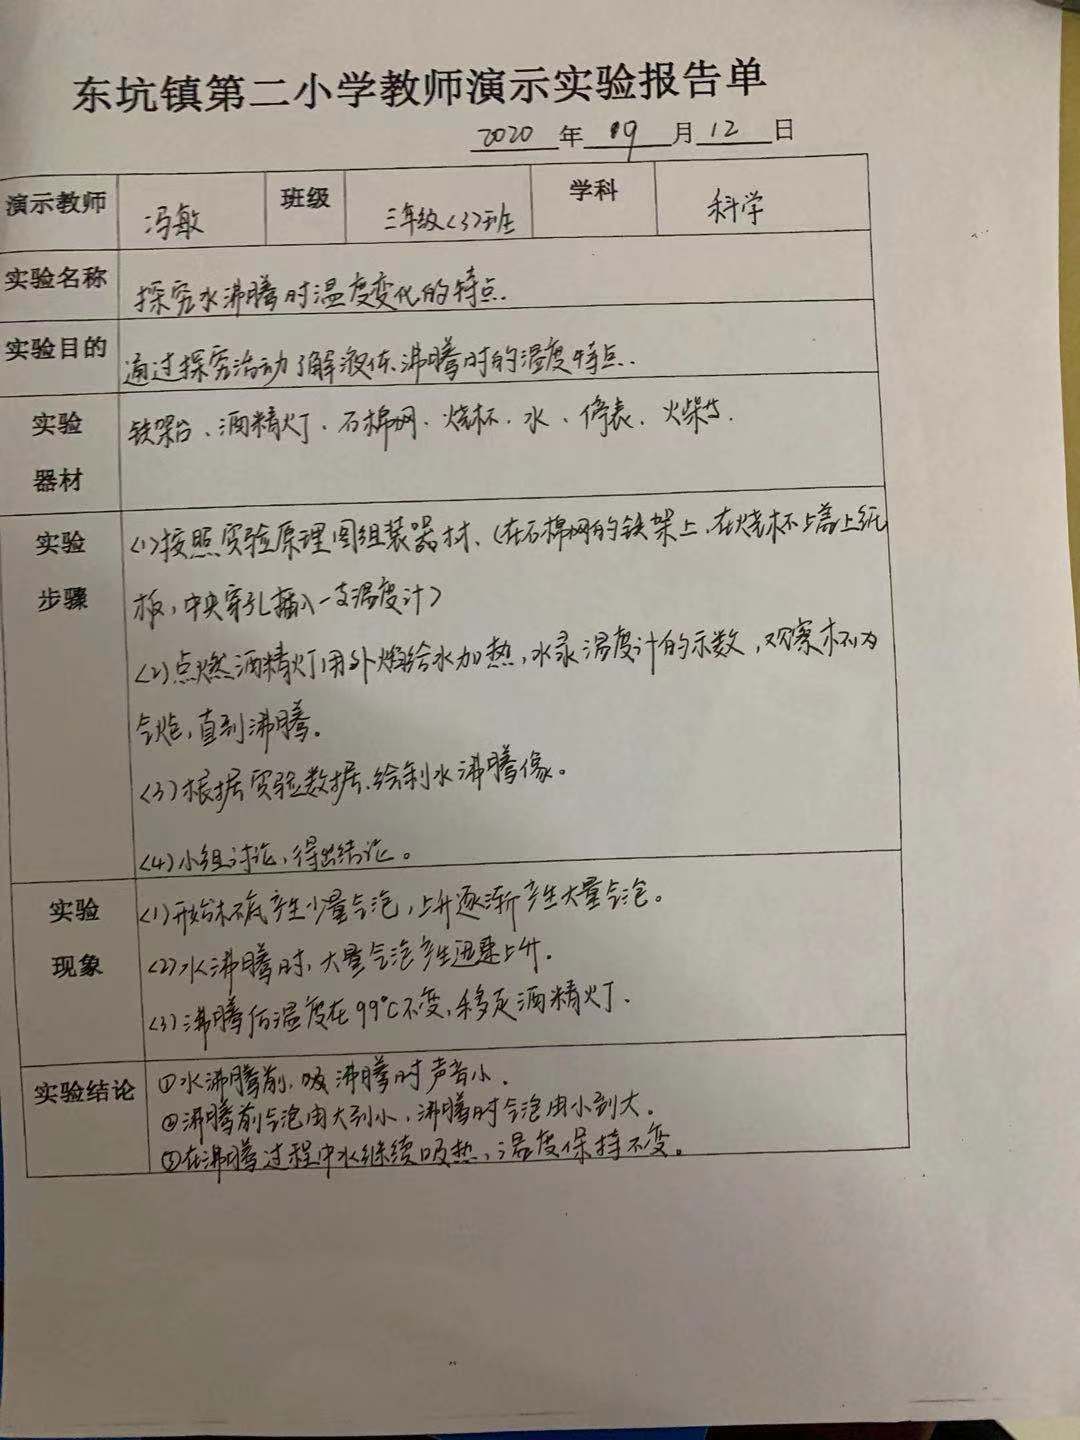 东坑镇第二小学教师演示实验报告单
2020 年 09 月 12 日
演示教师 冯敏 班级 三年级(3)班 学科 科学
实验名称 探究水沸腾时温度变化的特点.
实验目的 通过探究活动了解液体沸腾时的温度特点.
实验器材 铁架台、酒精灯、石棉网、烧杯、水、停表、火柴
实验步骤 (1)按照实验原理图组装器材、(在石棉网的铁架上,在烧杯上盖上纸
板,中央穿孔插入一支温度计)
(2)点燃酒精灯用外焰给水加热,水录温度计的示数,观察杯内
气炮,直到沸腾。
(3)根据实验数据、绘制水沸腾像。
(4)小组讨论,得出结论。
实验现象 (1)开始杯底产生少量气泡,上升逐渐产生大量气泡。
(2)水沸腾时,大量气泡产生迅速上升.
(3)沸腾后温度在99°C不变,移走酒精灯.
实验结论 ①水沸腾前,吸沸腾时声音小.
②沸腾前气泡由大到小,沸腾时气泡由小到大.
③在沸腾过程中水继续吸热,温度保持不变。